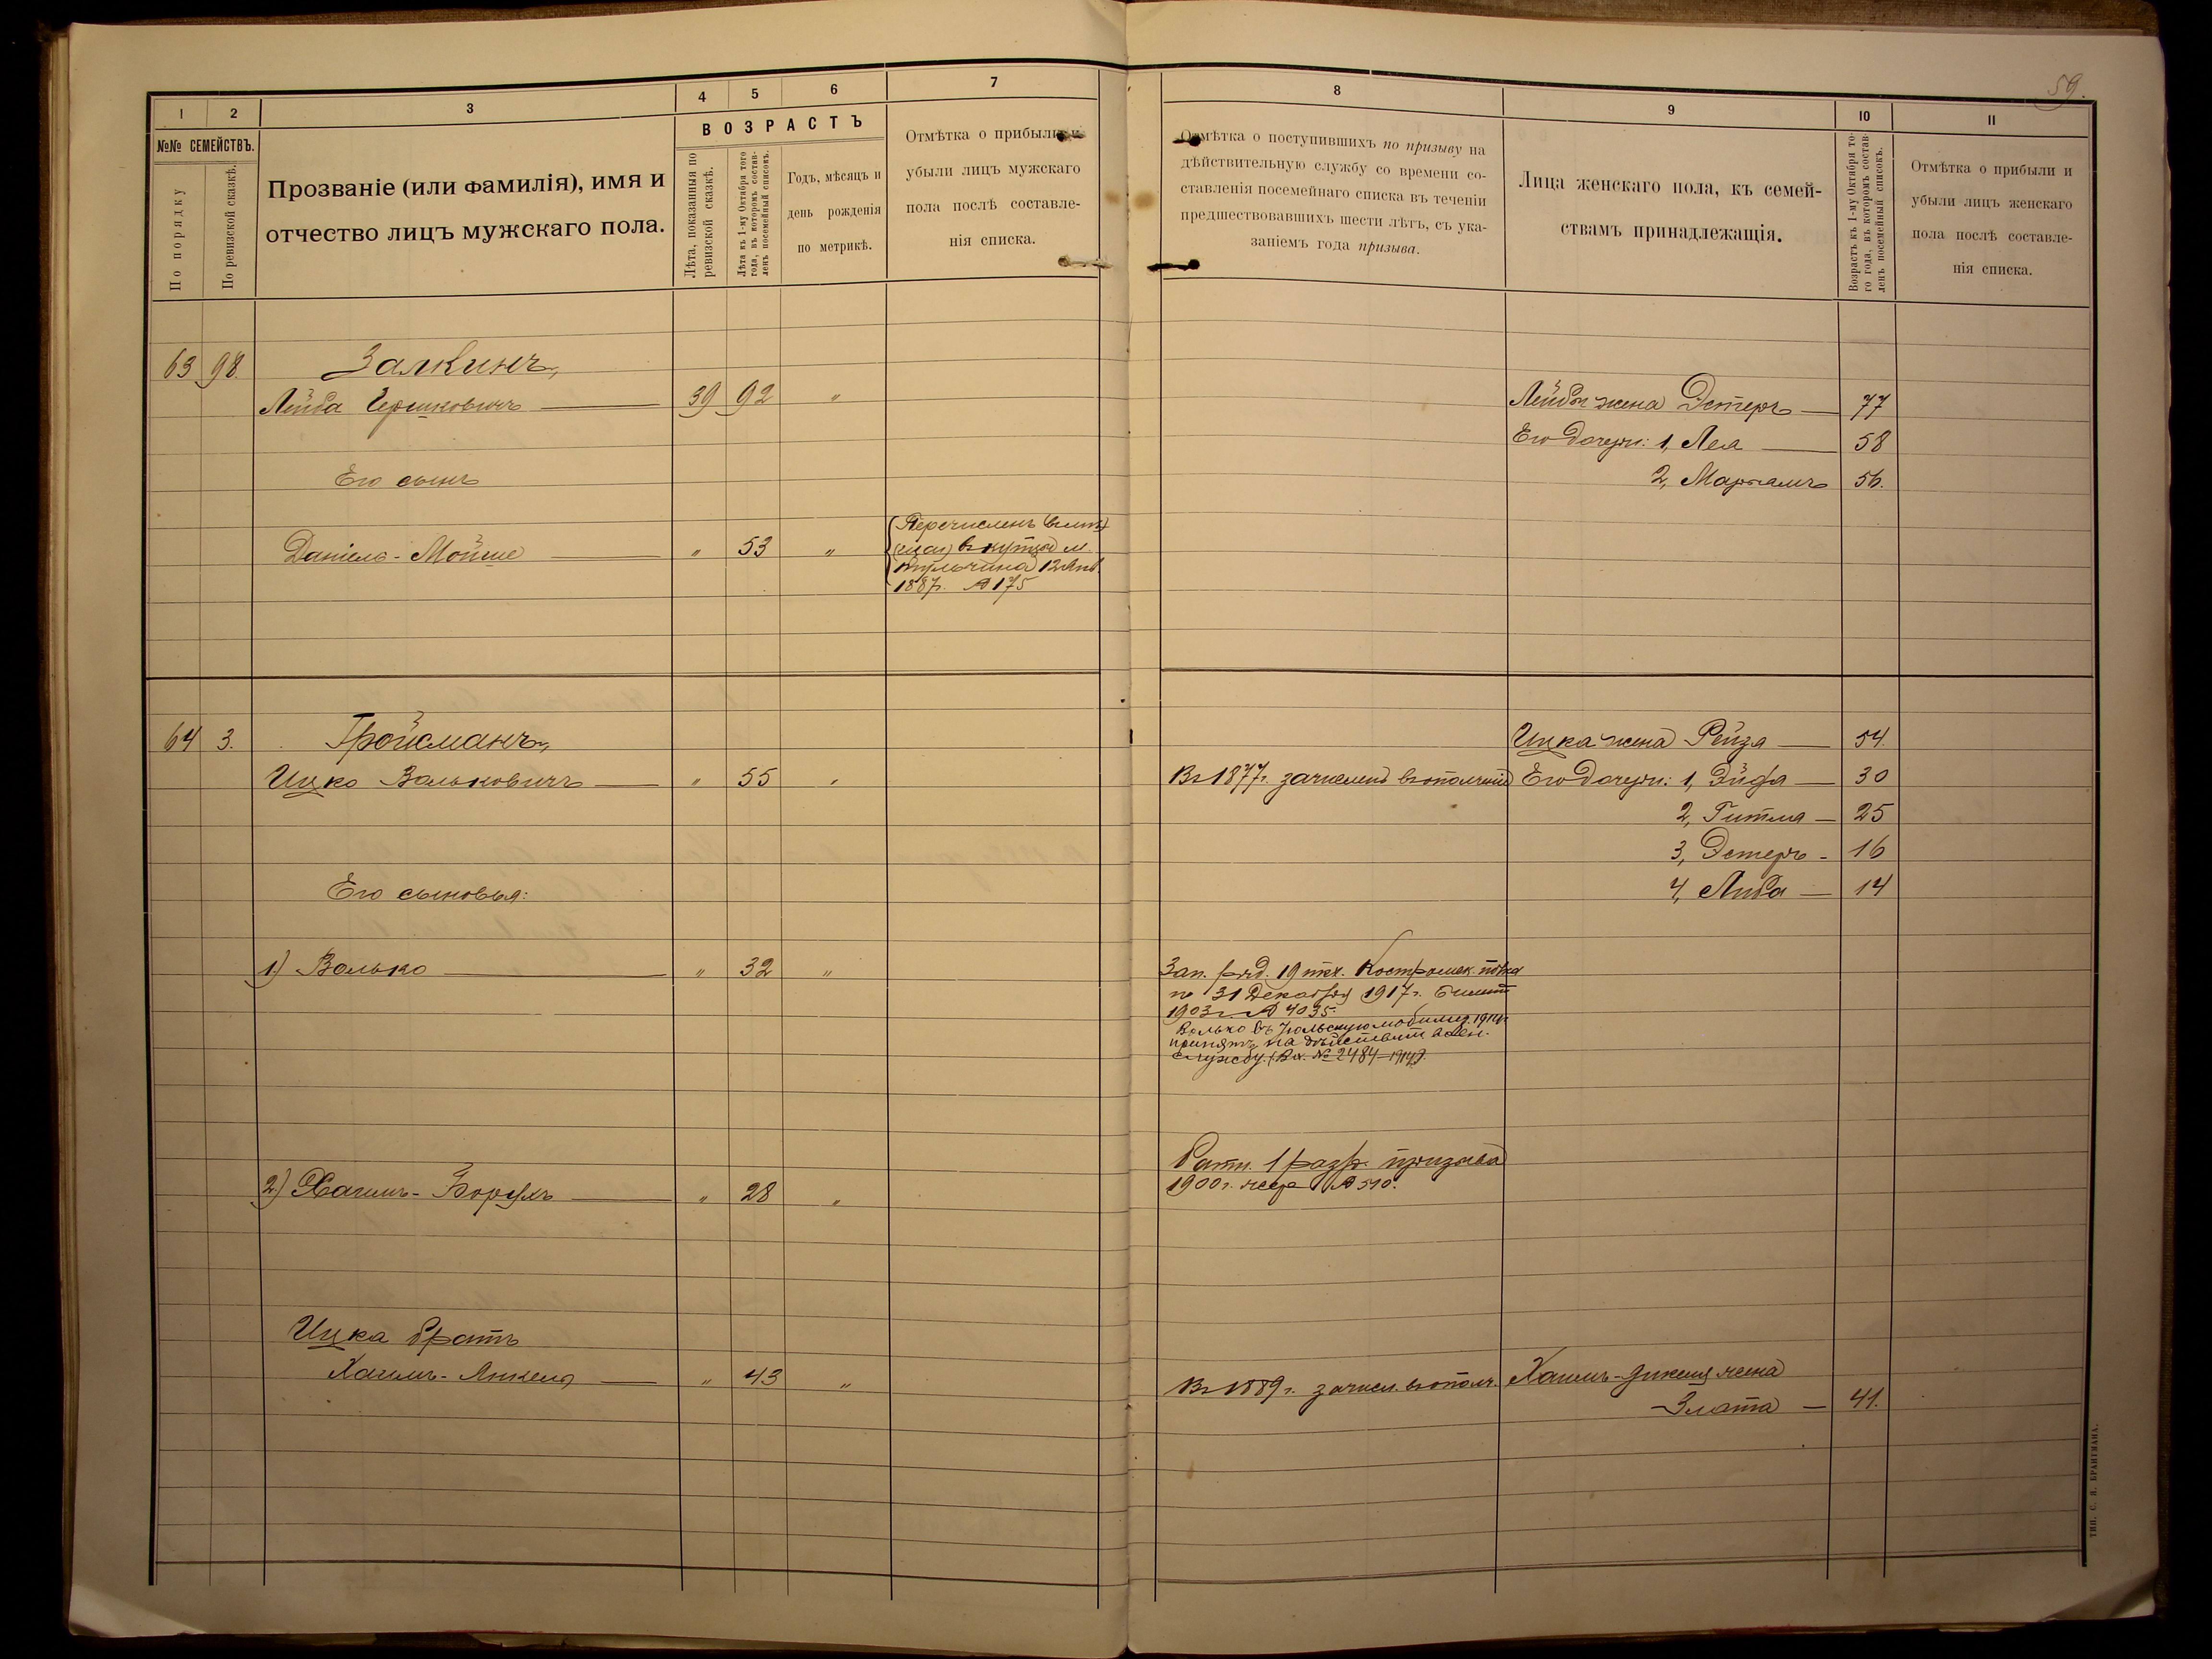 59.
1
2
3
4
5
6
7
8
9
10
11
№№ СЕМЕЙСТВЪ.
По порядку
По ревизской сказкѣ.
Прозваніе (или фамилія), имя и
отчество лицъ мужскаго пола.
ВОЗРАСТЪ
Лѣта, показанныя по
ревизской сказкѣ.
Лѣта къ 1-му Октября того
года, въ которомъ состав-
ленъ посемейный списокъ.
Годъ, мѣсяцъ и
день рожденія
по метрикѣ.
Отмѣтка о прибыли и
убыли лицъ мужскаго
пола послѣ составле-
нія списка.
Отмѣтка о поступившихъ по призыву на
дѣйствительную службу со времени со-
ставленія посемейнаго списка въ теченіи
предшествовавшихъ шести лѣтъ, съ ука-
заніемъ года призыва.
Лица женскаго пола, къ семей-
ствамъ принадлежащія.
Возрастъ къ 1-му Октября то-
го года, въ которомъ состав-
ленъ посемейный списокъ.
Отмѣтка о прибыли и
убыли лицъ женскаго
пола послѣ составле-
нія списка.
63 98. Залкинъ,
Лейба Гершковичъ — 39 92 "
Лейбы жена Эстеръ — 77
Его дочери: 1, Лея — 58
2, Марьямъ 56.
Его сынъ
Даніель-Мойше — " 53 "
Перечисленъ
въ купцы м.
Тульчина 12 Янв.
1887г. № 175
64 3. Гройсманъ,
Ицко Вольковичъ — " 55 "
Въ 1877г. зачисленъ въ ополченіе
Ицка жена Рейза — 54.
Его дочери: 1, Эйдя — 30
2, Гитля — 25
3, Эстеръ - 16
4, Люба — 14
Его сыновья:
1) Волько — " 32 "
Зап. ряд. 19 пѣх. Костромск. полка
по 31 Декабря 1917г. билетъ
1903г. № 4035.
Волько въ Іюльскую мобилиз. 1914г.
принятъ на дѣйствит. воен.
службу. (Вх. № 2484—1914г).
2) Хаимъ-Борухъ — " 28 "
Ратн. 1 разр. призыва
1900г. № 510.
Ицка братъ
Хаимъ-Янкель — " 43 "
Въ 1889г. зачисл. въ ополч.
Хаимъ-Янкеля жена
Злота — 41.
ТИП. С. Я. БРАНГМАНА.